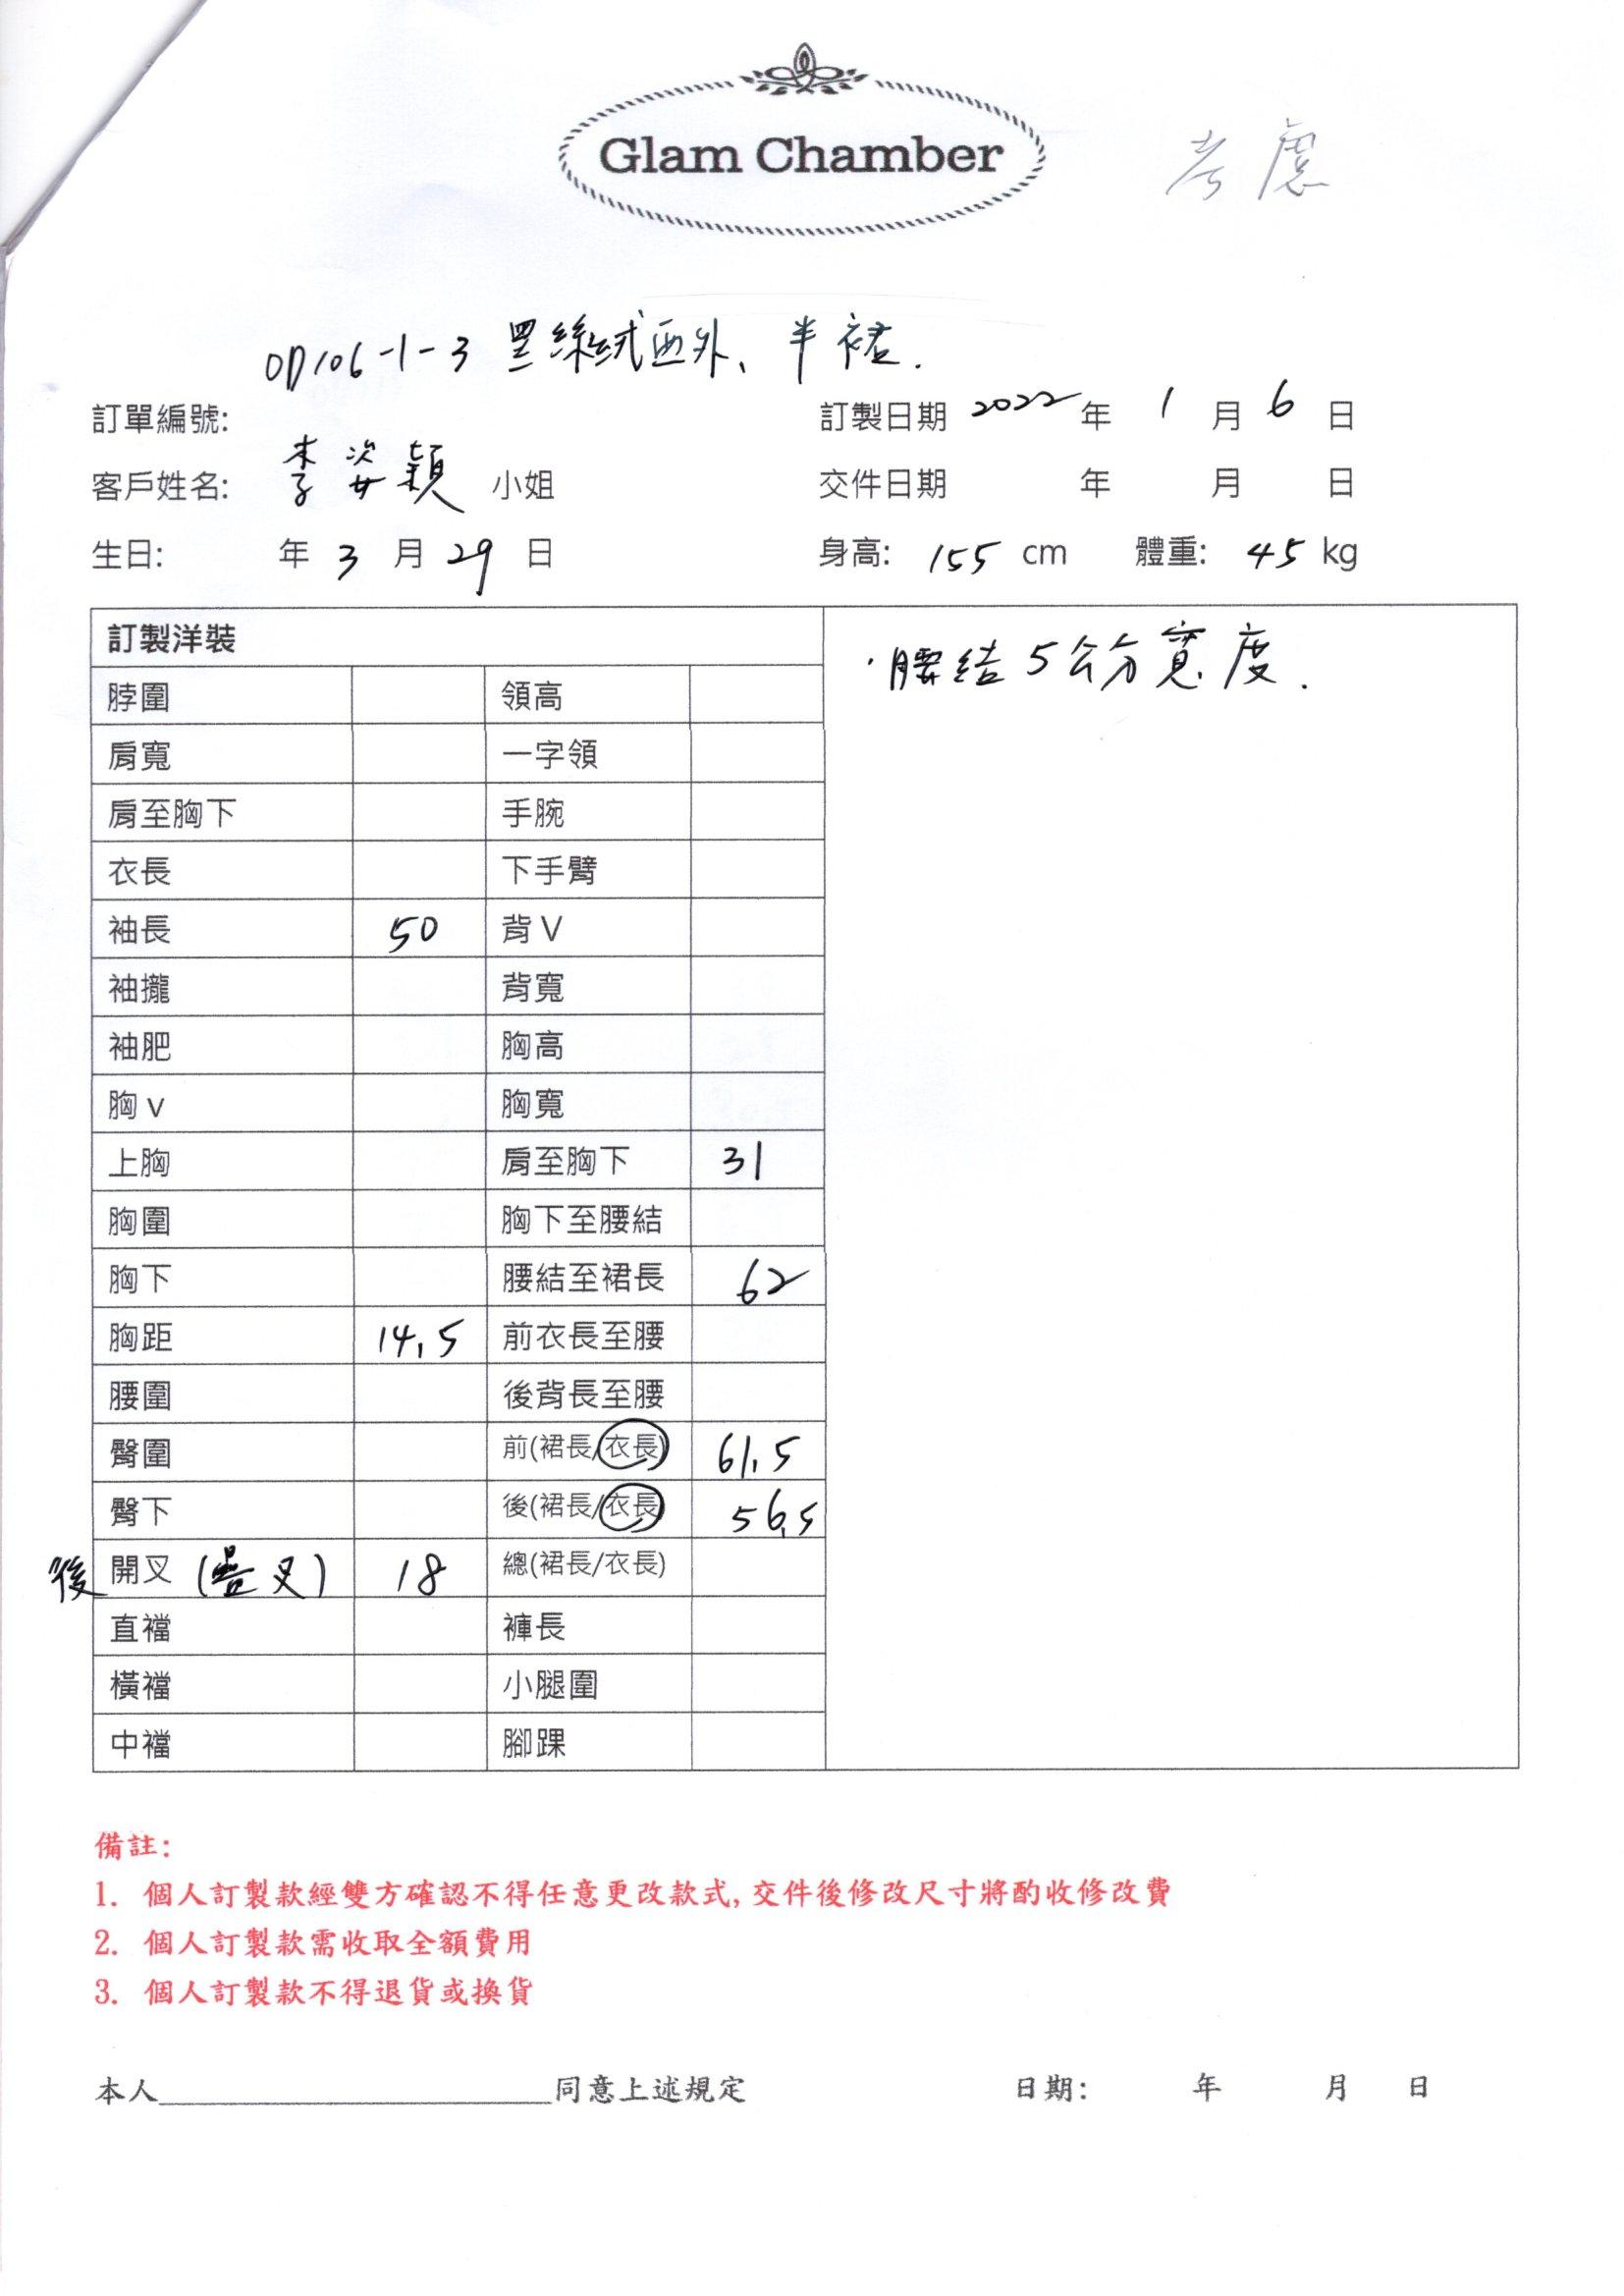 Glam Chamber
考慮
OD106-1-3 黑絲絨西外、半裙.
訂單編號: 訂製日期 2022 年 1 月 6 日
客戶姓名: 李姿穎 小姐 交件日期 年 月 日
生日: 年 3 月 29 日 身高: 155 cm 體重: 45 kg
訂製洋裝
·腰結5公分寬度.
脖圍 領高
肩寬 一字領
肩至胸下 手腕
衣長 下手臂
袖長 50 背V
袖攏 背寬
袖肥 胸高
胸v 胸寬
上胸 肩至胸下 31
胸圍 胸下至腰結
胸下 腰結至裙長 62
胸距 14.5 前衣長至腰
腰圍 後背長至腰
臀圍 前(裙長/衣長) 61.5
臀下 後(裙長/衣長) 56.5
後 開叉 (疊叉) 18 總(裙長/衣長)
直襠 褲長
橫襠 小腿圍
中襠 腳踝
備註:
1. 個人訂製款經雙方確認不得任意更改款式,交件後修改尺寸將酌收修改費
2. 個人訂製款需收取全額費用
3. 個人訂製款不得退貨或換貨
本人________________同意上述規定 日期: 年 月 日